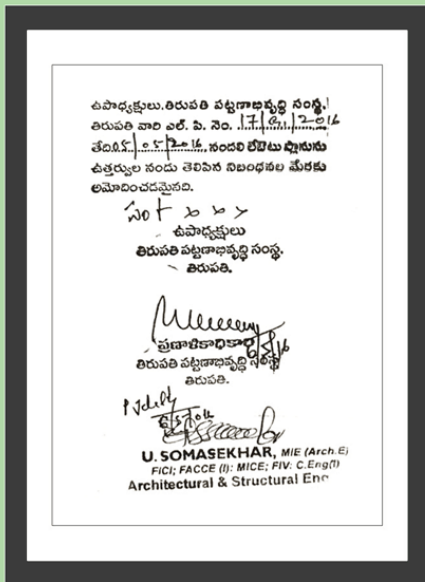 ఉపాధ్యక్షులు.తిరుపతి పట్టణాభివృద్ధి సంస్థ,
తిరుపతి వారి ఎల్. పి. నెం. 17/ /2016
తేది.05/05/2016. నందలి లేఔటు ప్లానును
ఉత్తర్వుల నందు తెలిపిన నిబంధనల మేరకు
ఆమోదించడమైనది.
ఉపాధ్యక్షులు
తిరుపతి పట్టణాభివృద్ధి సంస్థ.
తిరుపతి.
ప్రణాళికాధికారి
తిరుపతి పట్టణాభివృద్ధి సంస్థ
తిరుపతి.
U. SOMASEKHAR, MIE (Arch.E)
FICI; FACCE (I): MICE; FIV: C.Eng(I)
Architectural & Structural